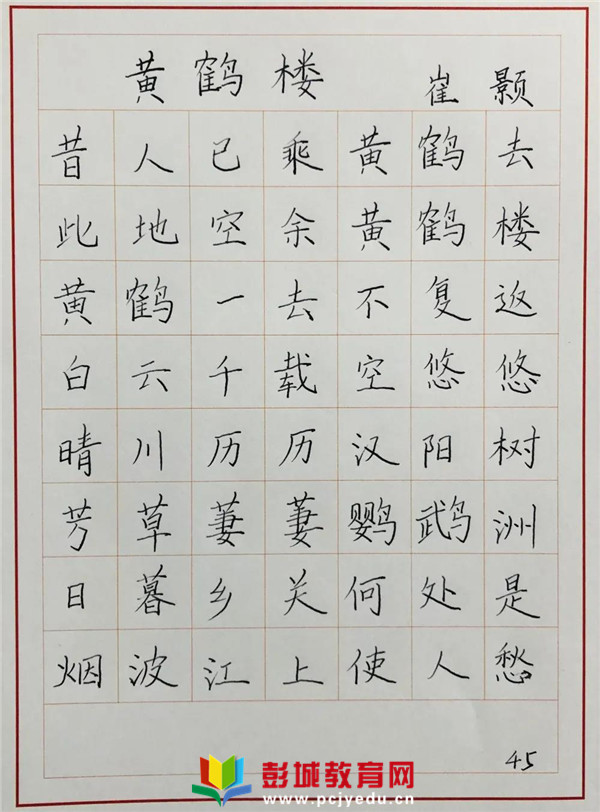 黄鹤楼 崔颢
昔人已乘黄鹤去
此地空余黄鹤楼
黄鹤一去不复返
白云千载空悠悠
晴川历历汉阳树
芳草萋萋鹦鹉洲
日暮乡关何处是
烟波江上使人愁
45
彭城教育网
www.pcjyedu.cn